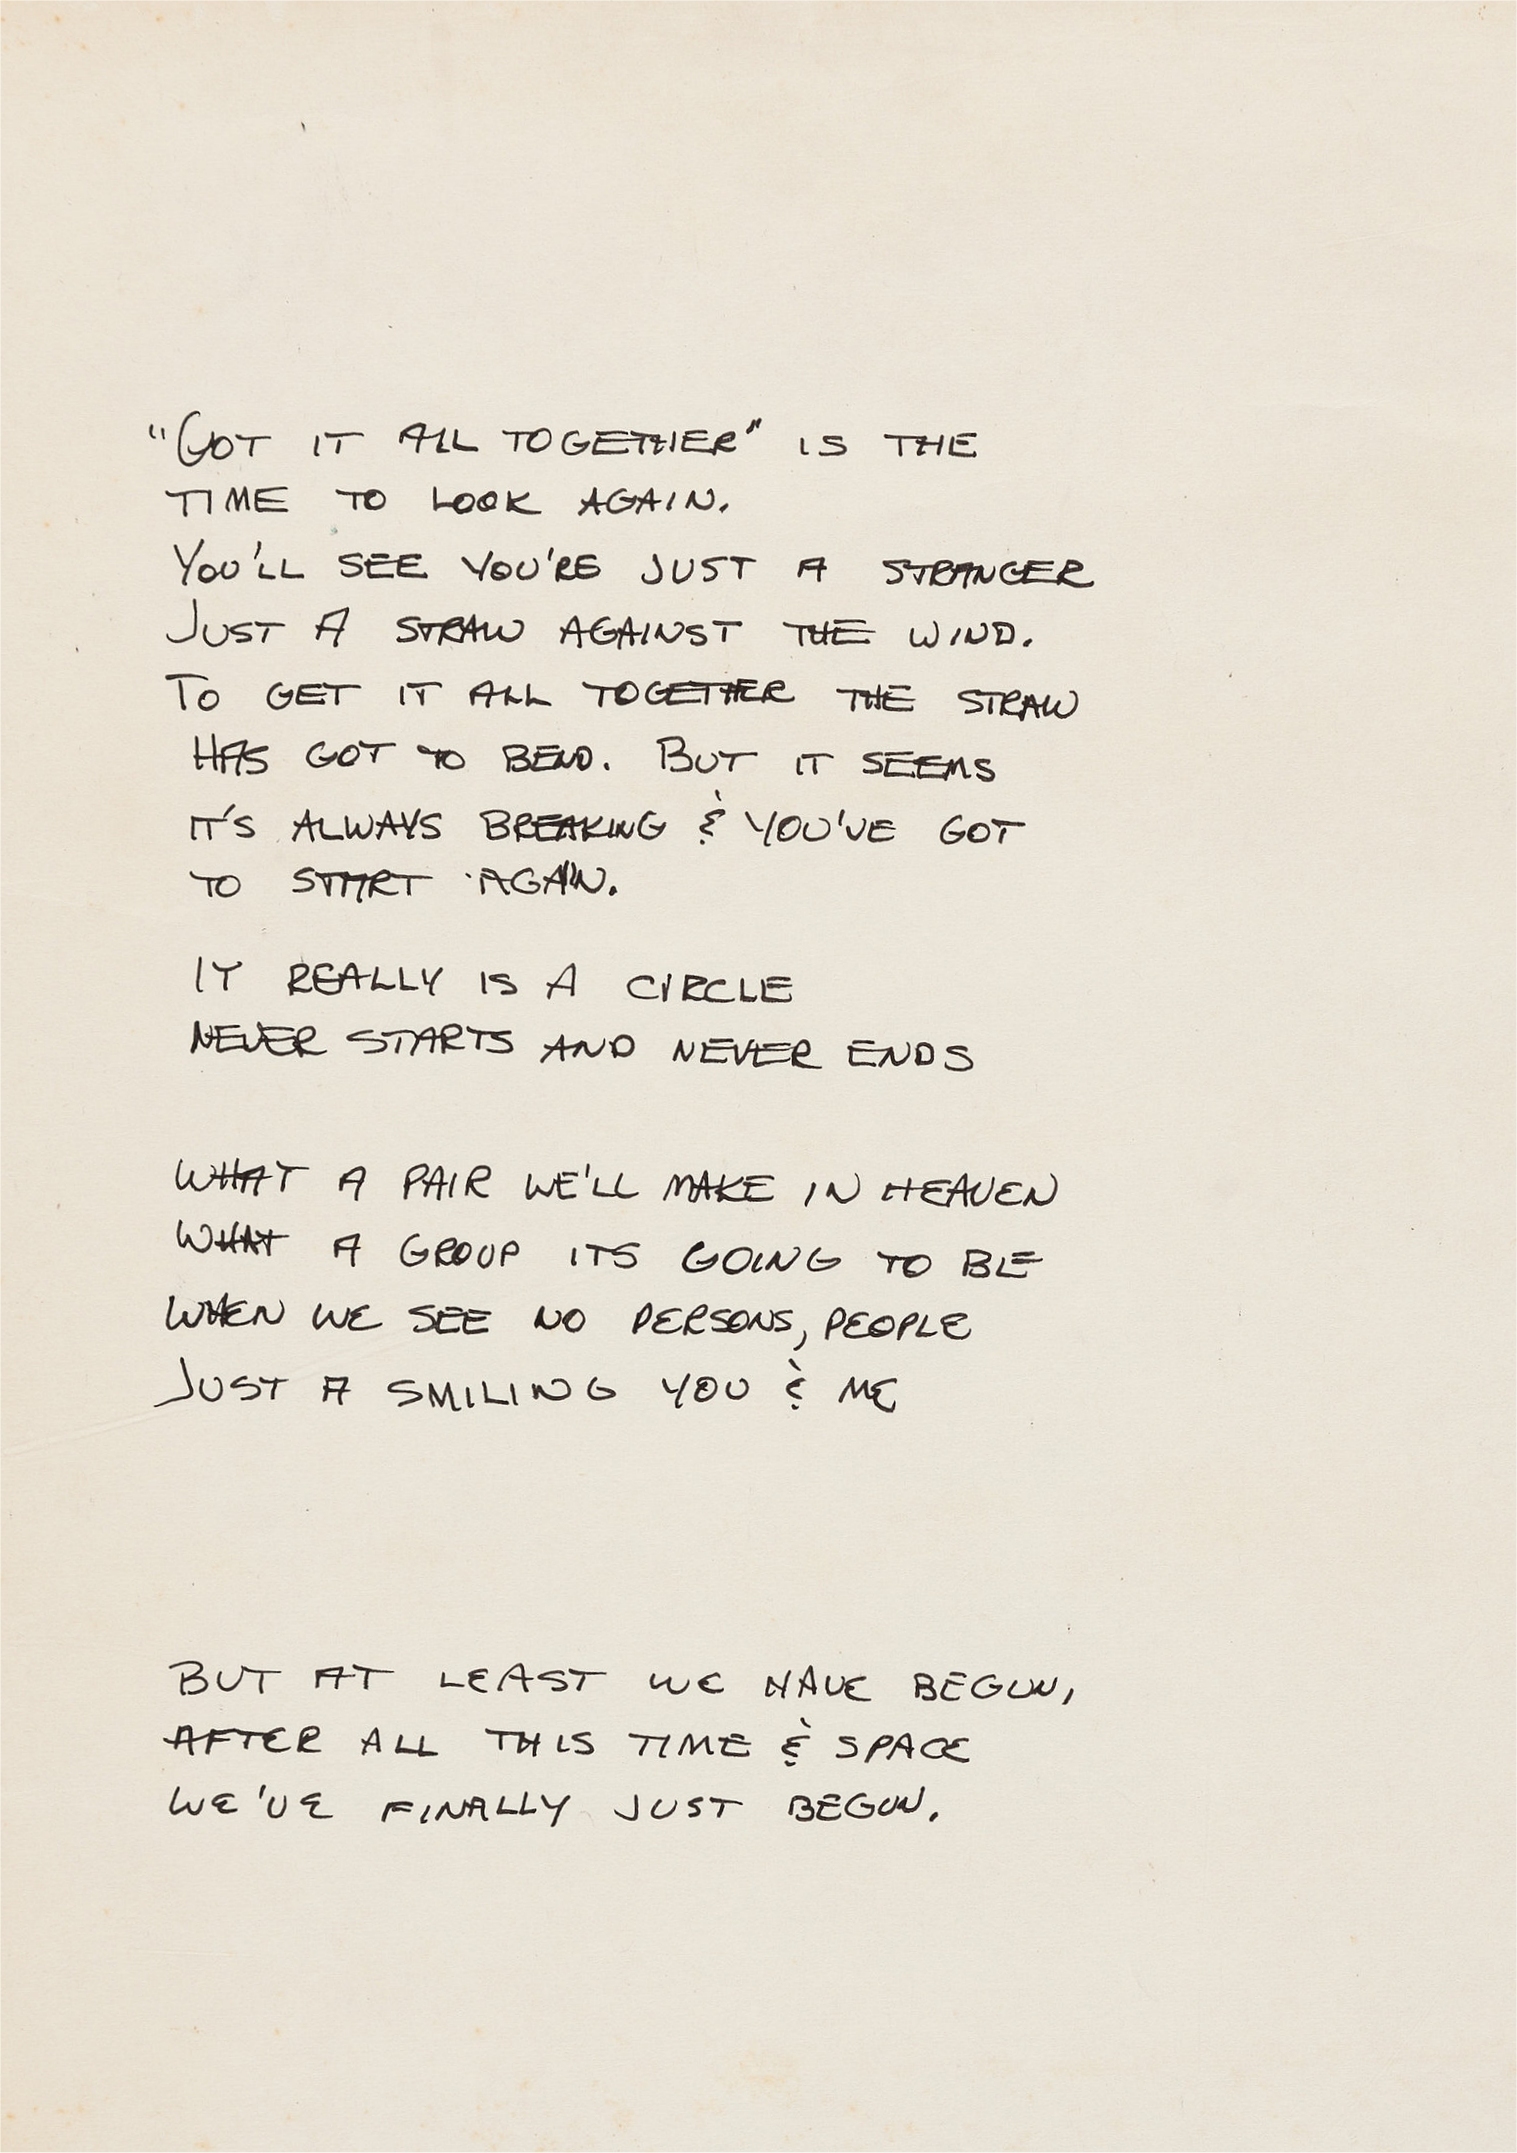 "GOT IT ALL TOGETHER" IS THE
TIME TO LOOK AGAIN.
YOU'LL SEE YOU'RE JUST A STRANGER
JUST A STRAW AGAINST THE WIND.
TO GET IT ALL TOGETHER THE STRAW
HAS GOT TO BEND. BUT IT SEEMS
IT'S ALWAYS BREAKING & YOU'VE GOT
TO START AGAIN.
IT REALLY IS A CIRCLE
NEVER STARTS AND NEVER ENDS
WHAT A PAIR WE'LL MAKE IN HEAVEN
WHAT A GROUP ITS GOING TO BE
WHEN WE SEE NO PERSONS, PEOPLE
JUST A SMILING YOU & ME
BUT AT LEAST WE HAVE BEGUN,
AFTER ALL THIS TIME & SPACE
WE'VE FINALLY JUST BEGUN.